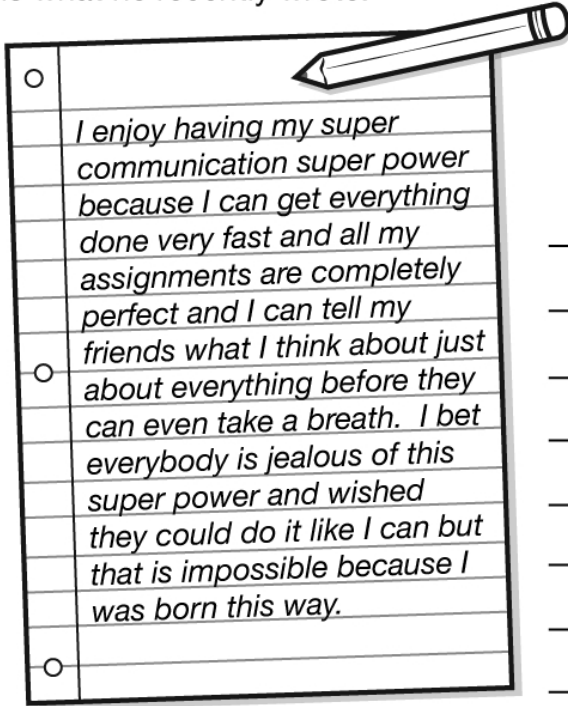 I enjoy having my super
communication super power
because I can get everything
done very fast and all my
assignments are completely
perfect and I can tell my
friends what I think about just
about everything before they
can even take a breath.  I bet
everybody is jealous of this
super power and wished
they could do it like I can but
that is impossible because I
was born this way.